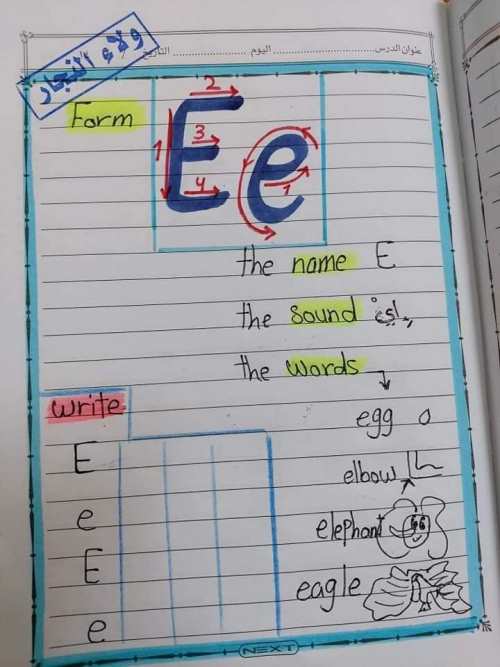 عنوان الدرس اليوم التاريخ
ولاء النجار
Form
E e
1 2 3 4
1
the name E
the sound إيْ
the words
egg
elbow
elephant
eagle
write
E
e
E
e
NEXT